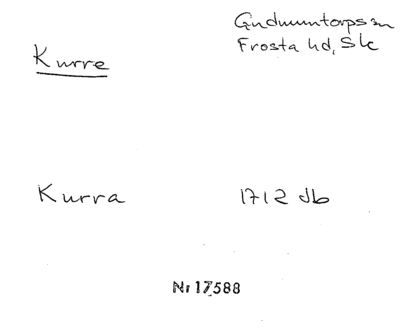 Gudmuntorps sn
Kurre
Frosta hd, Sk
Kurra 1712 db
Nr 17588